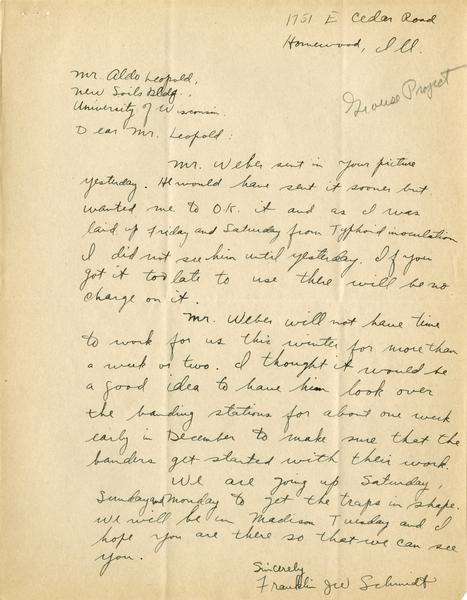 1751 E Cedar Road
Homewood, Ill.
Mr. Aldo Leopold,
New Soils Bldg.,
University of Wisconsin.
Grouse Project
Dear Mr. Leopold:
Mr. Weber sent in your picture
yesterday. He would have sent it sooner but
wanted me to O.K. it and as I was
laid up Friday and Saturday from Typhoid inoculation
I did not see him until yesterday. If you
got it too late to use there will be no
charge on it.
Mr. Weber will not have time
to work for us this winter for more than
a week or two. I thought it would be
a good idea to have him look over
the banding stations for about one week
early in December to make sure that the
banders get started with their work.
We are going up Saturday,
Sunday and Monday to get the traps in shape.
We will be in Madison Tuesday and I
hope you are there so that we can see
you.
Sincerely
Franklin JW Schmidt